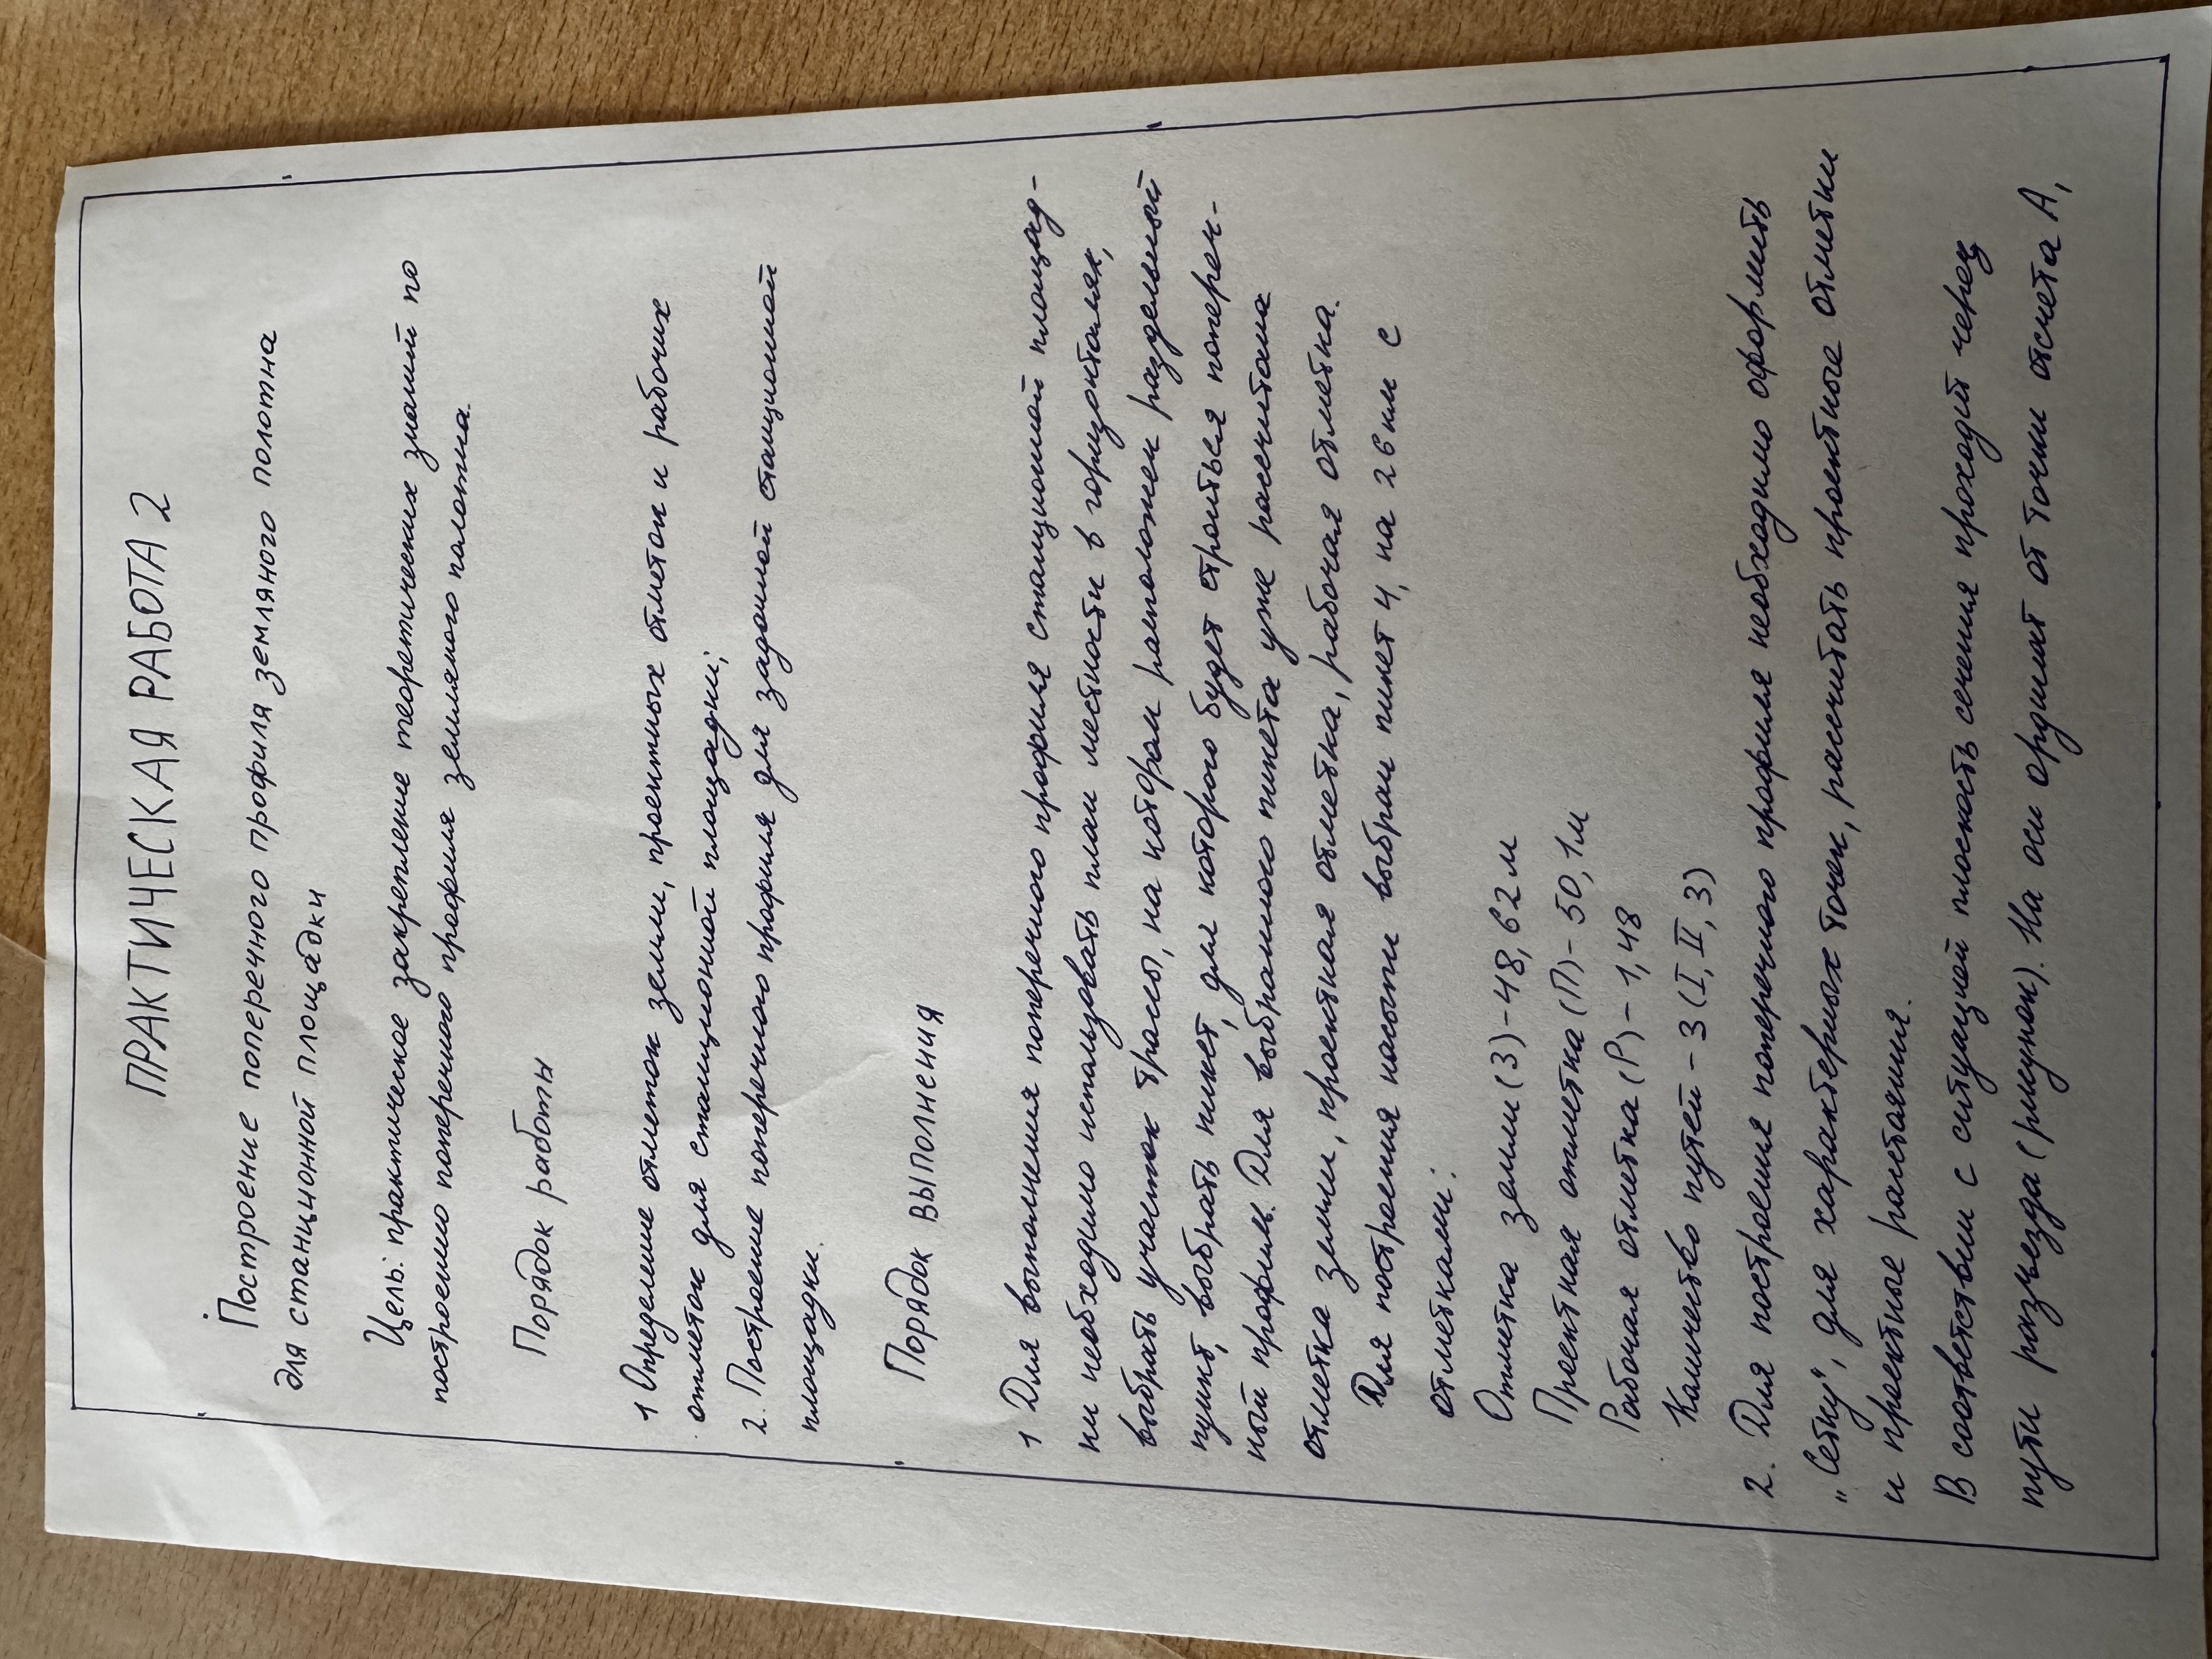 ПРАКТИЧЕСКАЯ РАБОТА 2
Построение поперечного профиля земляного полотна
для станционной площадки
Цель: практическое закрепление теоретических знаний по
построению поперечного профиля земляного полотна.
Порядок работы
1 Определение отметок земли, проектных отметок и рабочих
отметок для станционной площадки;
2. Построение поперечного профиля для заданной станционной
площадки.
Порядок выполнения
1 Для выполнения поперечного профиля станционной площад-
ки необходимо использовать план местности в горизонталях,
выбрать участок трассы, на котором расположен раздельный
пункт, выбрать пикет, для которого будет строиться попереч-
ный профиль. Для выбранного пикета уже рассчитана
отметка земли, проектная отметка, рабочая отметка.
Для построения насыпи выбран пикет 4, на 26 км с
отметками:
Отметка земли (З) - 48,62 м
Проектная отметка (П) - 50,1 м
Рабочая отметка (Р) - 1,48
Количество путей - 3 (I, II, 3)
2. Для построения поперечного профиля необходимо оформить
„Сетку", для характерных точек, рассчитать проектные отметки
и проектные расстояния.
В соответствии с ситуацией плоскость сечения проходит через
пути разъезда (рисунок). На оси ординат от точки отсчета А,